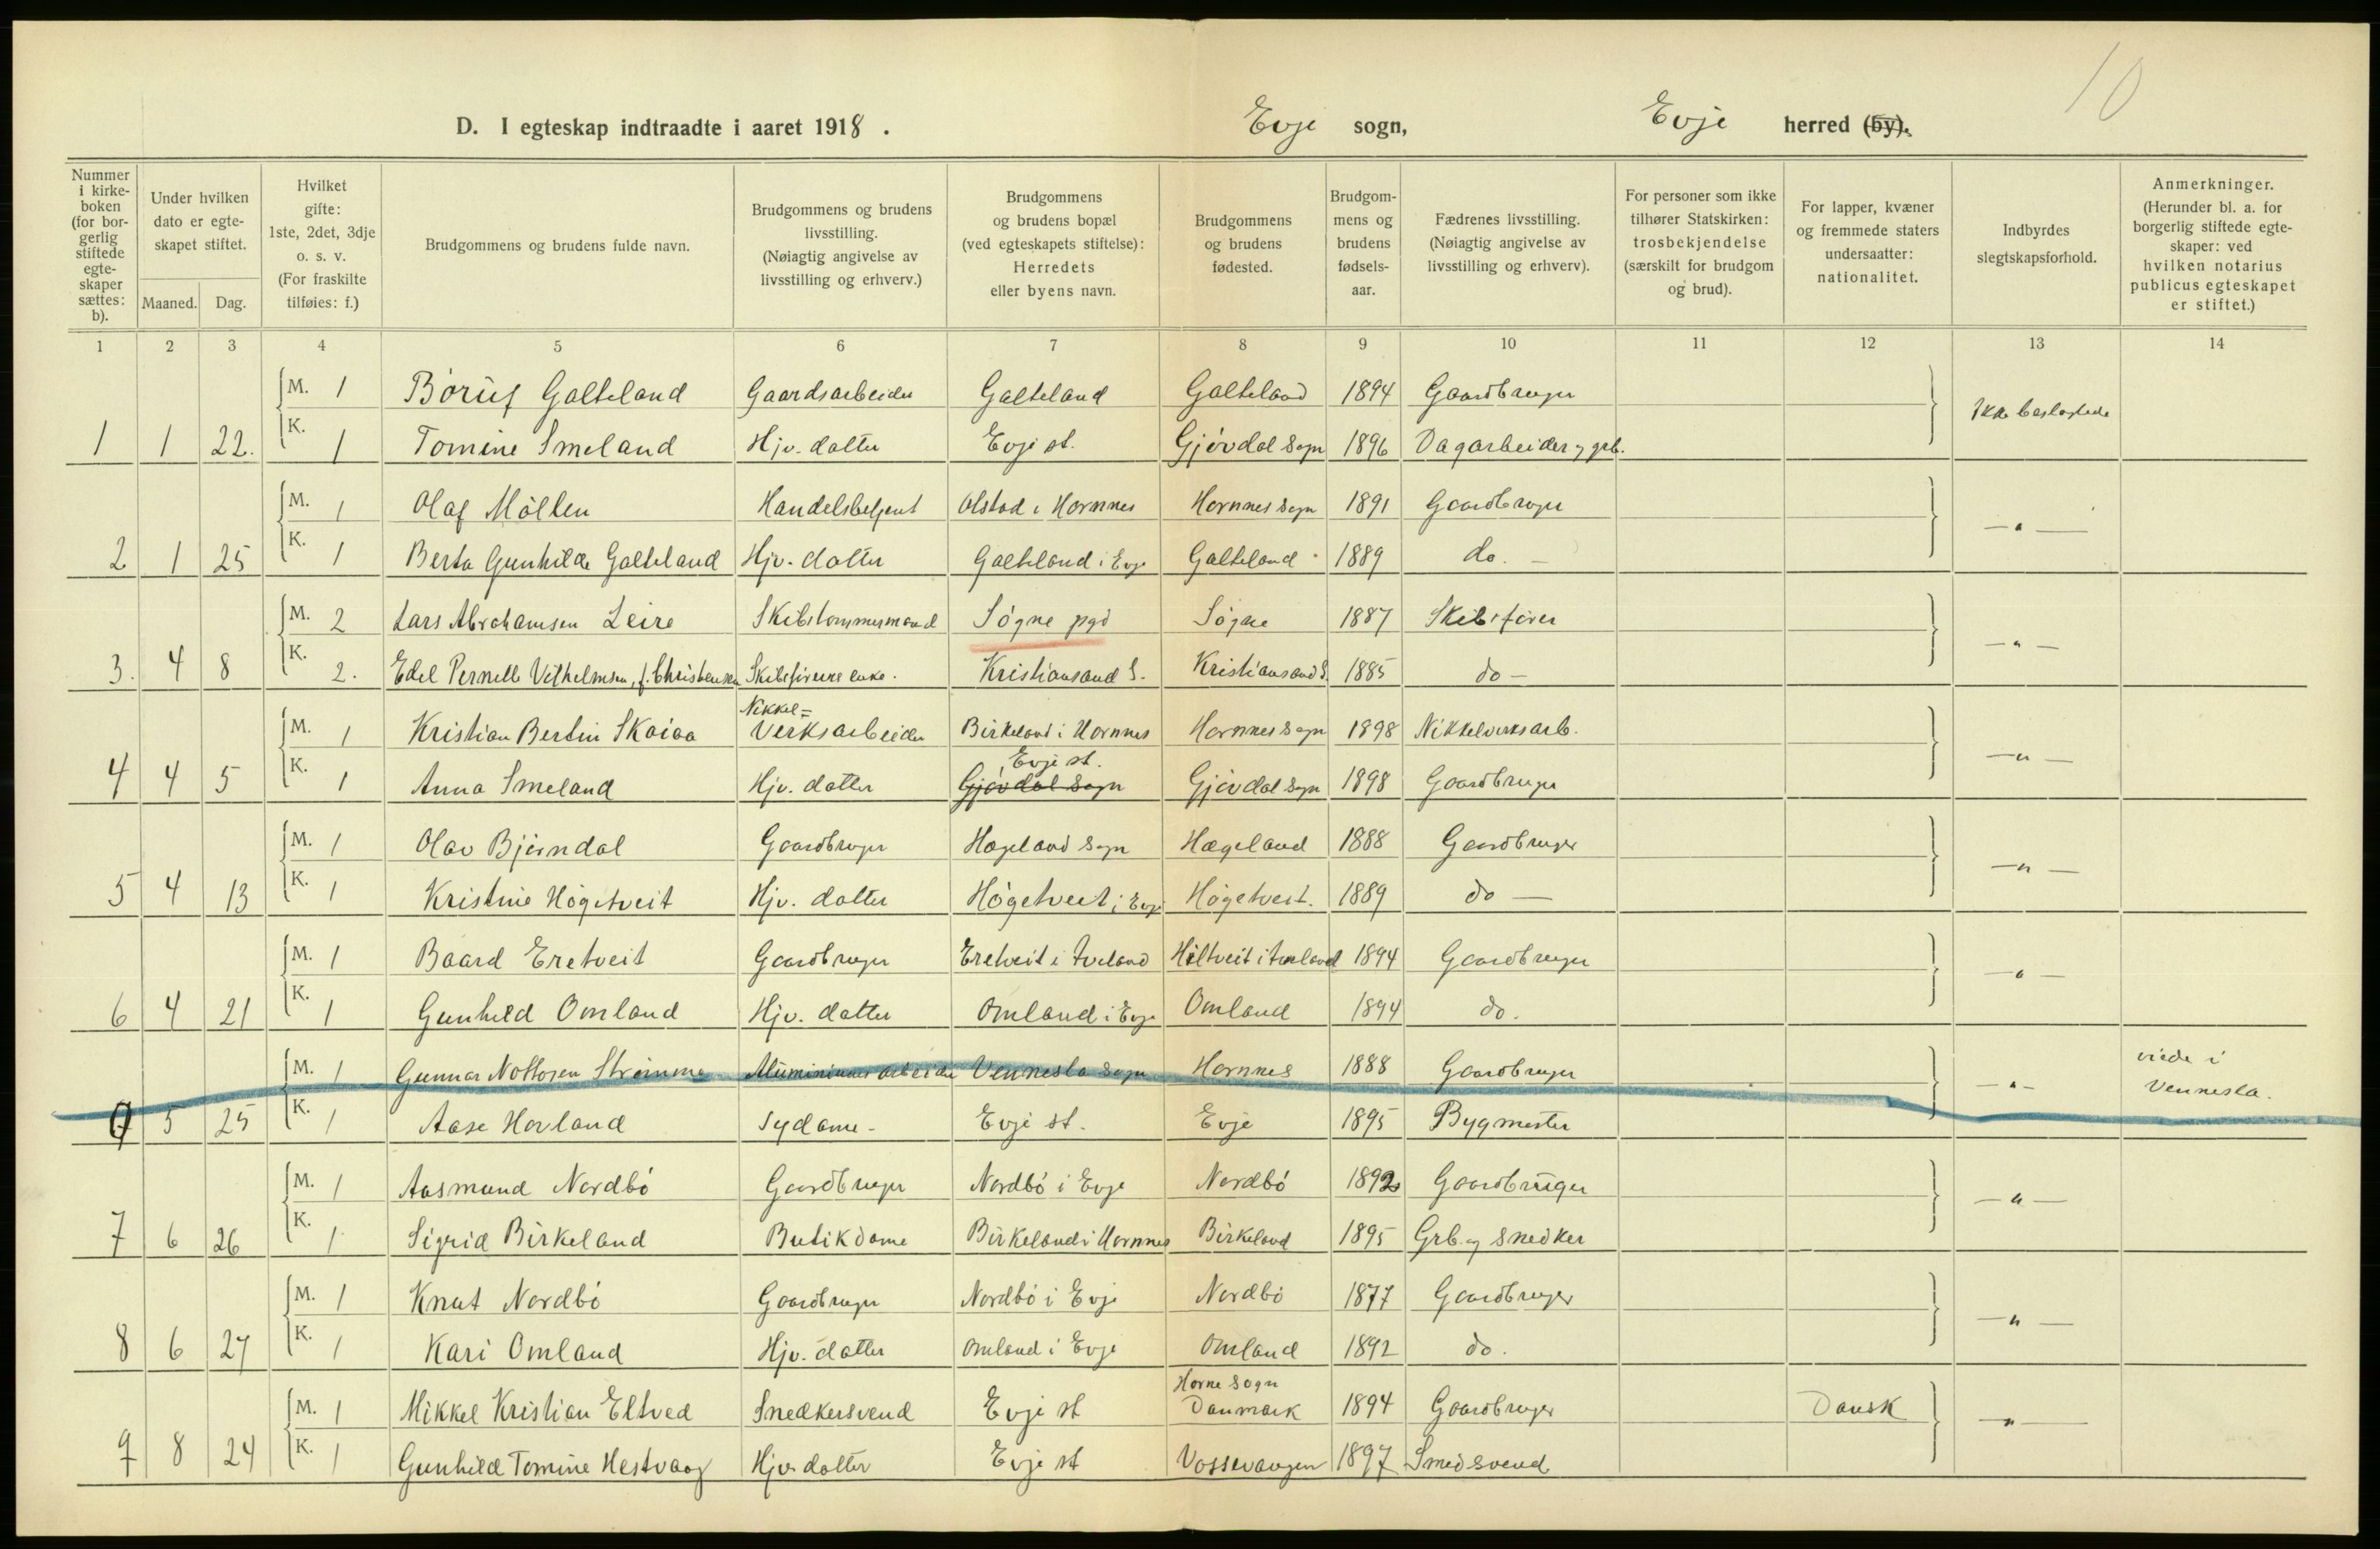 10
D. I egteskap indtraadte i aaret 1918. Evje sogn, Evje herred (by).
Nummer i kirkeboken (for borgerlig stiftede egteskaper sættes: b).
Under hvilken dato er egteskapet stiftet.
Maaned. Dag.
Hvilket gifte: 1ste, 2det, 3dje o. s. v. (For fraskilte tilføies: f.)
Brudgommens og brudens fulde navn.
Brudgommens og brudens livsstilling. (Nøiagtig angivelse av livsstilling og erhverv.)
Brudgommens og brudens bopæl (ved egteskapets stiftelse): Herredets eller byens navn.
Brudgommens og brudens fødested.
Brudgommens og brudens fødselsaar.
Fædrenes livsstilling. (Nøiagtig angivelse av livsstilling og erhverv).
For personer som ikke tilhører Statskirken: trosbekjendelse (særskilt for brudgom og brud).
For lapper, kvæner og fremmede staters undersaatter: nationalitet.
Indbyrdes slegtskapsforhold.
Anmerkninger. (Herunder bl. a. for borgerlig stiftede egteskaper: ved hvilken notarius publicus egteskapet er stiftet.)
1 2 3 4 5 6 7 8 9 10 11 12 13 14
M. 1 Børüf Galteland Gaardsarbeider Galteland Galteland 1894 Gaardbruger
1 1 22. K. 1 Tomine Smeland Hjv. datter Evje st. Gjövdal sogn 1896 Dagarbeider og grb. Ikke beslegtede
M. 1 Olaf Möllen Handelsbetjent Olstad i Hornnes Hornnes sogn 1891 Gaardbruger
2 1 25 K. 1 Berta Gunhilde Galteland Hjv. datter Galteland i Evje Galteland 1889 do. — — " —
M. 2 Lars Abrahamsen Leire Skibstømmermand Søgne pgd Søgne 1887 Skibsfører
3. 4 8 K. 2. Edel Pernelle Vilhelmsen, f. Christensen Skibsførers enke. Kristiansand S. Kristiansand S. 1885 do — — " —
M. 1 Kristian Bertin Skaiaa Nikkel= Verksarbeider Birkeland i Hornnes Hornnes sogn 1898 Nikkelverksarb.
4 4 5 K. 1 Anna Smeland Hjv. datter Evje st. Gjövdal sogn Gjövdal sogn 1898 Gaardbruger — " —
M. 1 Olav Bjørndal Gaardbruger Hægeland sogn Hægeland 1888 Gaardbruger
5 4 13 K. 1 Kristine Högetveit Hjv. datter Högetveit i Evje Högetveit. 1889 do — — " —
M. 1 Baard Eretveit Gaardbruger Eretveit i Iveland Hiltveit i Iveland 1894 Gaardbruger
6 4 21 K. 1 Gunhild Omland Hjv. datter Omland i Evje Omland 1894 do. — " —
M. 1 Gunnar Nottosen Strømme Aluminiumarbeider Vennesla sogn Hornnes 1888 Gaardbruger viede i Vennesla.
0 5 25 K. 1 Aase Hovland Sydame - Evje st. Evje 1895 Bygmester — " —
M. 1 Aasmund Nordbö Gaardbruger Nordbö i Evje Nordbö 1892 Gaardbrüger
7 6 26 K. 1 Sigrid Birkeland Butikdame Birkeland i Hornnes Birkeland 1895 Grb. og snedker — " —
M. 1 Knut Nordbö Gaardbruger Nordbö i Evje Nordbö 1877 Gaardbruger
8 6 27 K. 1 Kari Omland Hjv. datter Omland i Evje Omland 1892 do. — " —
M. 1 Mikkel Kristian Eltved Snedkersvend Evje st Horne sogn Danmark 1894 Gaardbruger Dansk
9 8 24 K. 1 Gunhild Tomine Hestvaag Hjv. datter Evje st Vossevangen 1897 Smedsvend — " —